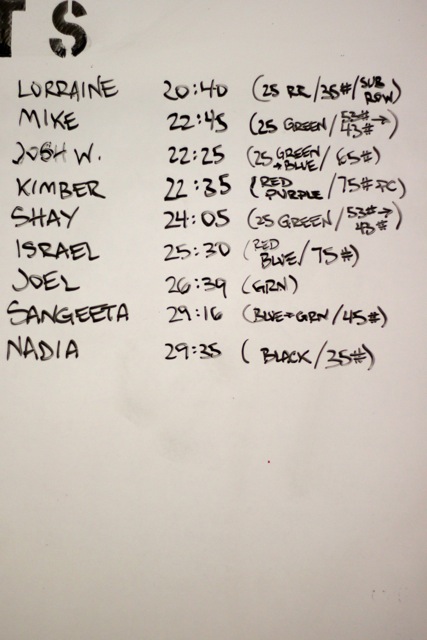 TS
LORRAINE 20:40 (25 RR/35#/SUB ROW)
MIKE 22:45 (25 GREEN/53#→43#)
JOSH W. 22:25 (25 GREEN+BLUE/65#)
KIMBER 22:35 (RED PURPLE/75# PC)
SHAY 24:05 (25 GREEN/53#→43#)
ISRAEL 25:30 (RED BLUE/75#)
JOEL 26:39 (GRN)
SANGEETA 29:16 (BLUE+GRN/45#)
NADIA 29:35 (BLACK/35#)